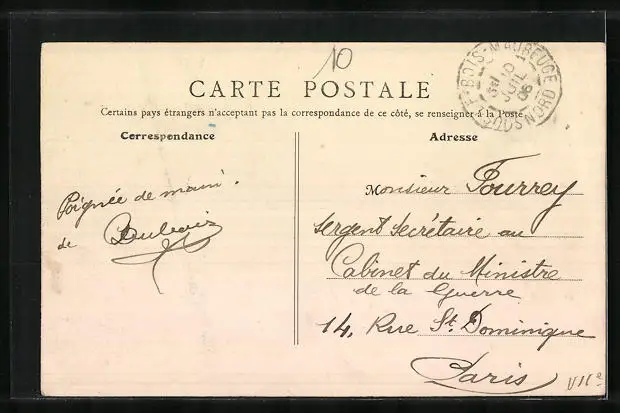 10
CARTE POSTALE
Certains pays étrangers n'acceptent pas la correspondance de ce côté, se renseigner à la Poste
Correspondance
Poignée de main.
de Dubois
Adresse
Monsieur Fourrey
Sergent Secrétaire au
Cabinet du Ministre
de la Guerre
14, Rue St. Dominique
Paris
VIIe
MAUBEUGE
10
JUIL
06
NORD